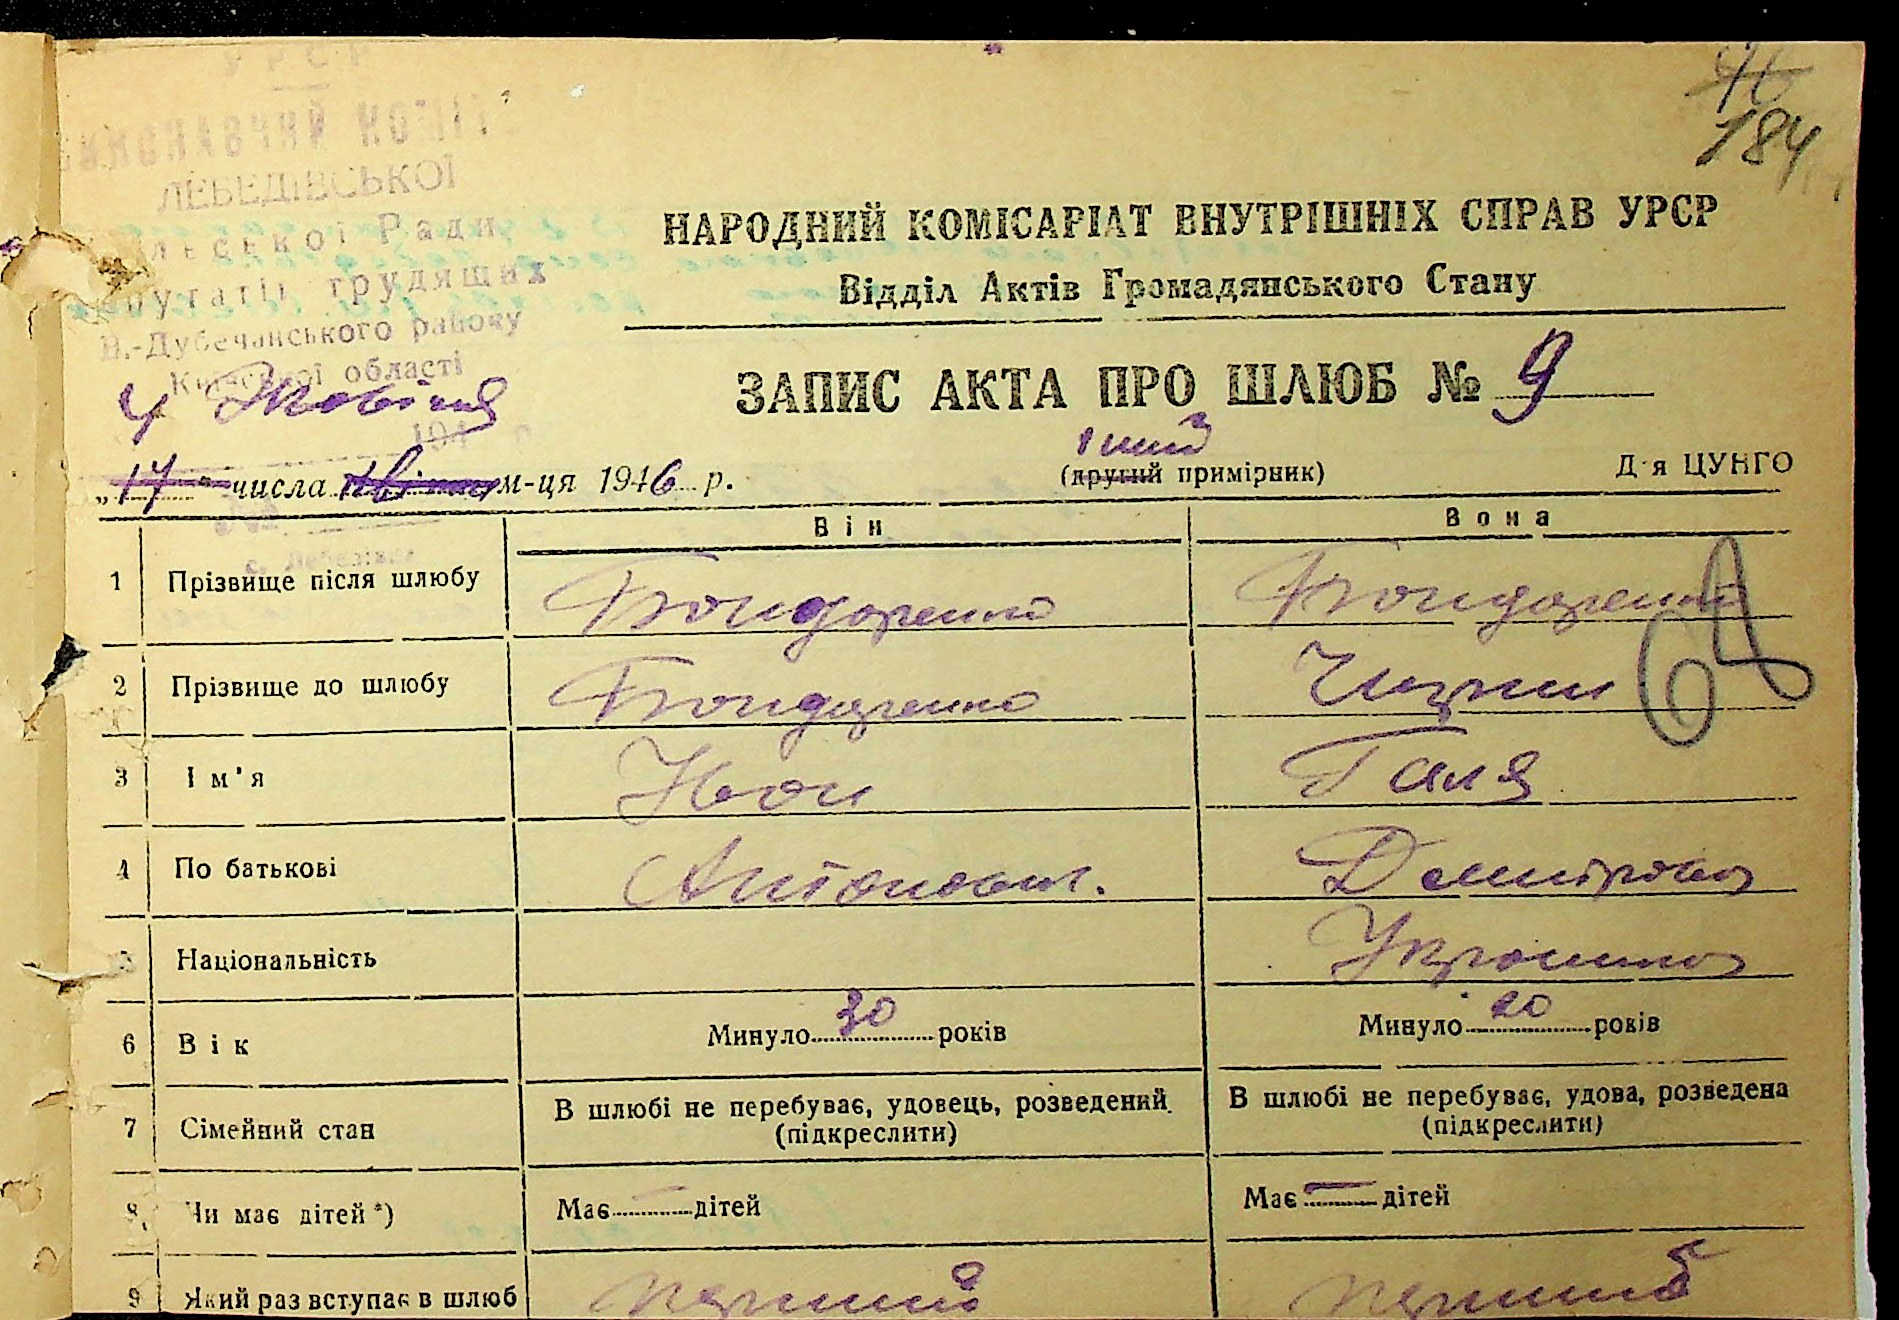 УРСР
ВИКОНАВЧИЙ КОМІТ
ЛЕБЕДІВСЬКОЇ
льської Ради
путатів трудящих
В.-Дубечанського району
Київської області
4 Жовтня
194
76
184
НАРОДНИЙ КОМІСАРІАТ ВНУТРІШНІХ СПРАВ УРСР
Відділ Актів Громадянського Стану
ЗАПИС АКТА ПРО ШЛЮБ № 9
„17" числа квітня м-ця 1946 р.
1ший
(другий примірник)
Для ЦУНГО
с. Лебедівка
Він Вона
1 Прізвище після шлюбу Бондаренко Бондаренко
2 Прізвище до шлюбу Бондаренко
3 Ім'я Иван Галя
4 По батькові Антонович. Демитровна
5 Національність Украинка
6 Вік Минуло 30 років Минуло 20 років
7 Сімейний стан В шлюбі не перебуває, удовець, розведений. (підкреслити) В шлюбі не перебуває, удова, розведена (підкреслити)
8. Чи має дітей*) Має — дітей Має — дітей
9 Який раз вступає в шлюб перший перший